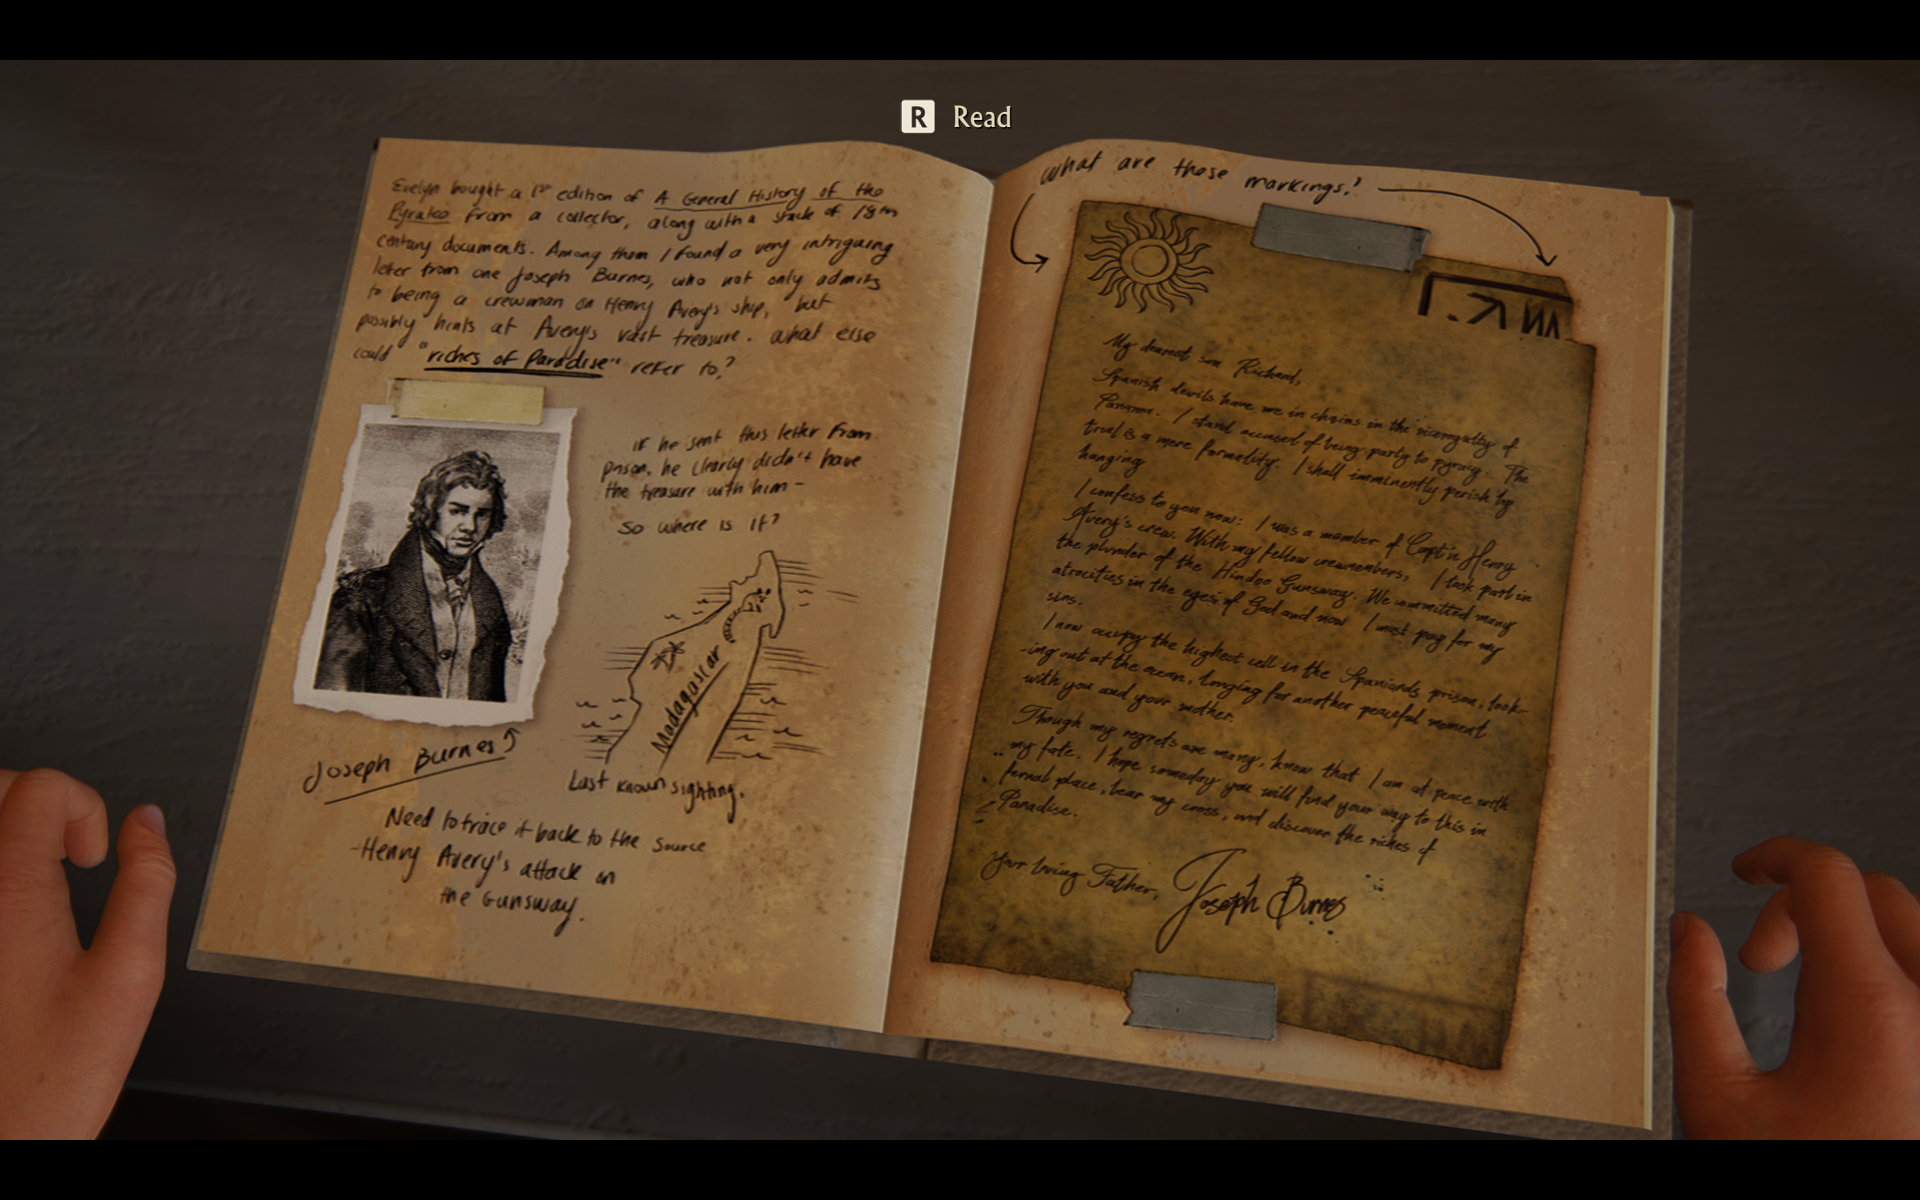 R Read
Evelyn bought a 1st edition of A General History of the
Pyrates from a collector, along with a stack of 18th
century documents. Among them I found a very intriguing
letter from one Joseph Burnes, who not only admits
to being a crewman on Henry Avery's ship, but
possibly hints at Avery's vast treasure. What else
could "riches of Paradise" refer to?
If he sent this letter from
prison, he clearly didn't have
the treasure with him -
so where is it?
Madagascar
Joseph Burnes
Last known sighting.
Need to trace it back to the source
-Henry Avery's attack on
the Gunsway.
What are those markings?
My dearest son Richard,
Spanish devils have me in chains in the viceroyalty of
Panama. I stand accused of being party to pyracy. The
trial is a mere formality. I shall imminently perish by
hanging
I confess to you now: I was a member of Capt'n Henry
Avery's crew. With my fellow crewmembers, I took part in
the plunder of the Hindoo Gunsway. We committed many
atrocities in the eyes of God and now I must pay for my
sins.
I now occupy the highest cell in the Spaniards prison, look-
-ing out at the ocean, longing for another peaceful moment
with you and your mother.
Though my regrets are many, know that I am at peace with
my fate. I hope someday you will find your way to this in
fernal place, bear my cross, and discover the riches of
Paradise.
Your loving Father,
Joseph Burnes